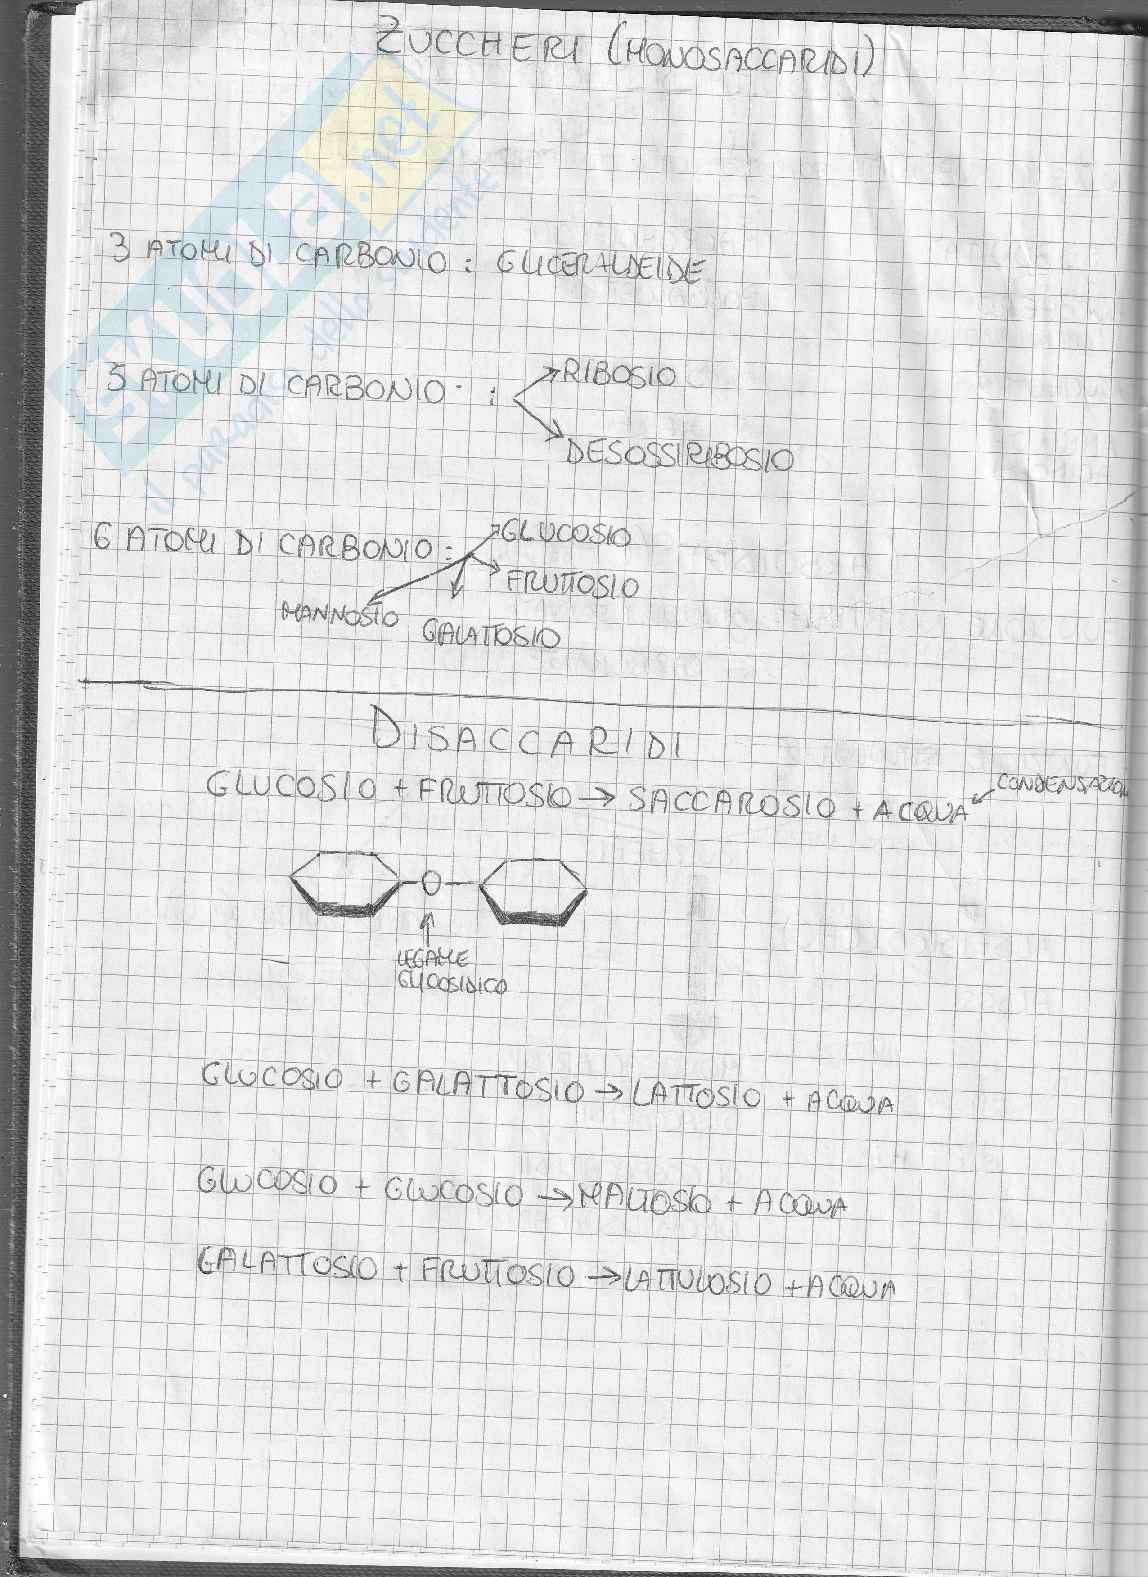 ZUCCHERI (MONOSACCARIDI)
SKUOLA.net
il paradiso dello studente
3 ATOMI DI CARBONIO : GLICERALDEIDE
5 ATOMI DI CARBONIO : RIBOSIO
DESOSSIRIBOSIO
6 ATOMI DI CARBONIO : GLUCOSIO
FRUTTOSIO
MANNOSIO GALATTOSIO
DISACCARIDI
GLUCOSIO + FRUTTOSIO → SACCAROSIO + ACQUA CONDENSAZION
O
LEGAME
GLICOSIDICO
GLUCOSIO + GALATTOSIO → LATTOSIO + ACQUA
GLUCOSIO + GLUCOSIO → MALTOSIO + ACQUA
GALATTOSIO + FRUTTOSIO → LATTULOSIO + ACQUA